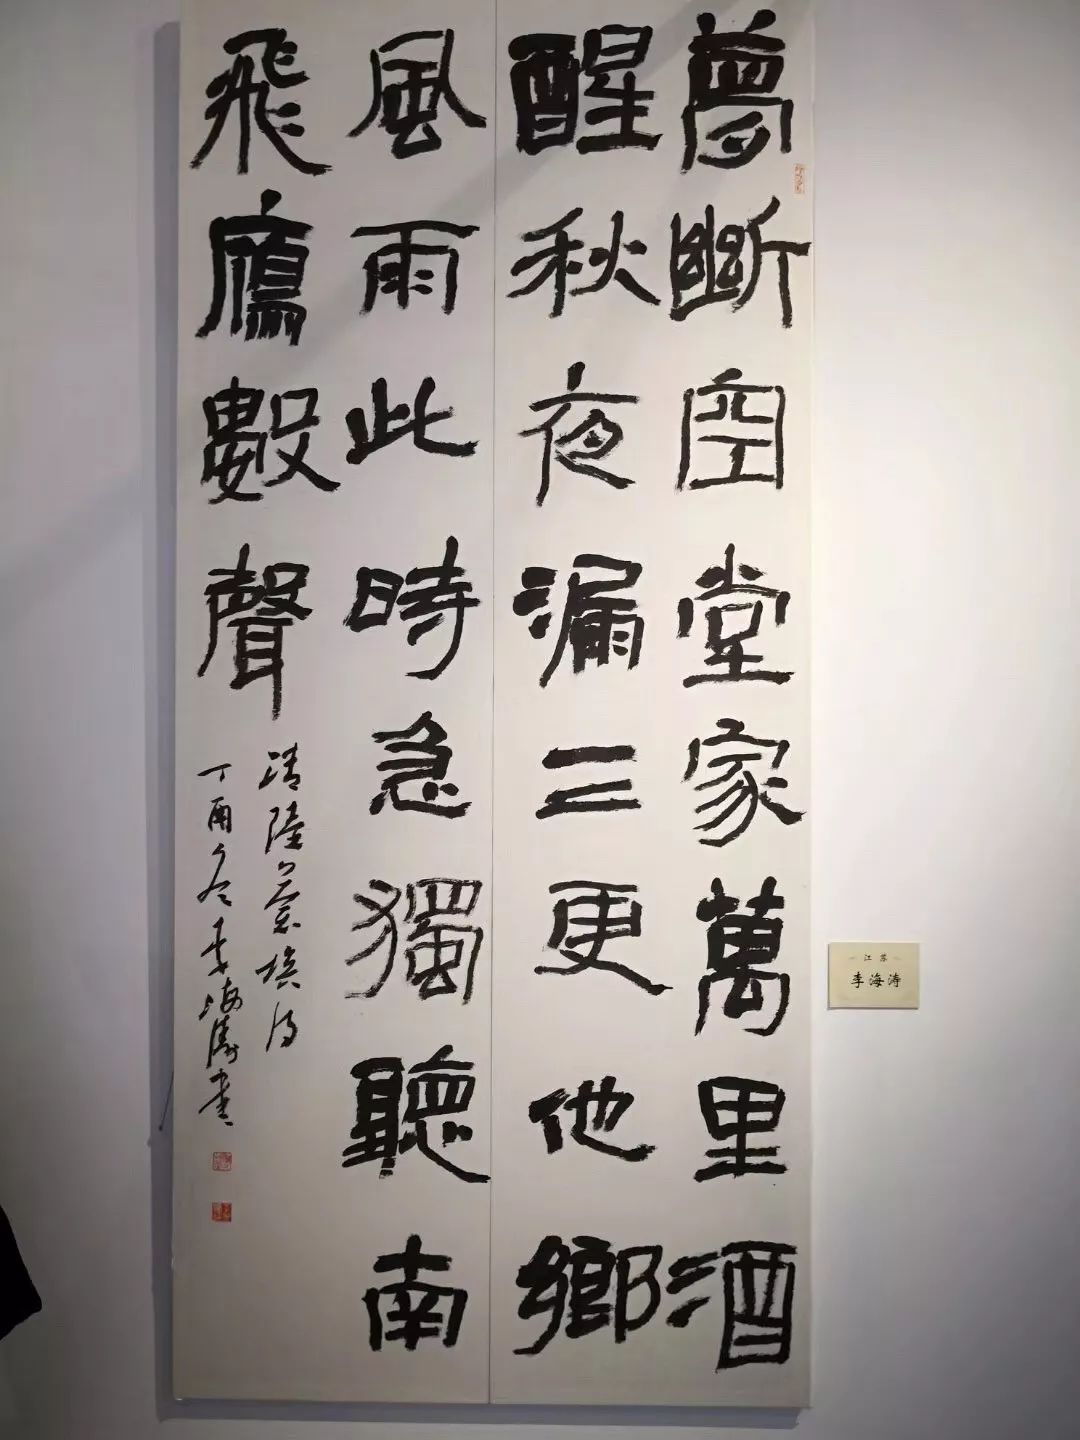 夢斷空堂家萬里酒
醒秋夜漏三更他鄉
風雨此時急獨聽南
飛鴈數聲
清陸
丁酉冬李海濤書
江苏
李海涛